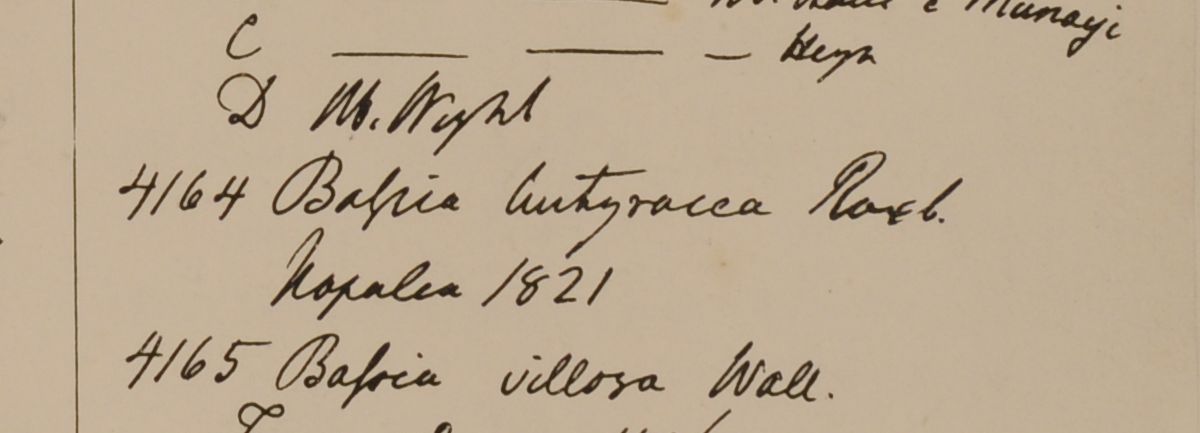 Munayi
C — — — Heyn
D Hb. Wight
4164 Baſsia butyracea Roxb.
Napalia 1821
4165 Baſsia villosa Wall.